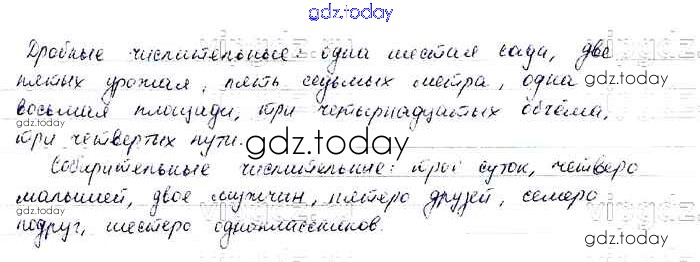 gdz.today
Дробные числительные: одна шестая сада, две
пятых урожая, пять седьмых метра, одна
восьмая площади, три четырнадцатых объёма,
три четвертых пути.
Собирательные числительные: трое суток, четверо
малышей, двое мужчин, пятеро друзей, семеро
подруг, шестеро одноклассников.
gdz.today
gdz.today
gdz.today
gdz.today
gdz.today
gdz.today